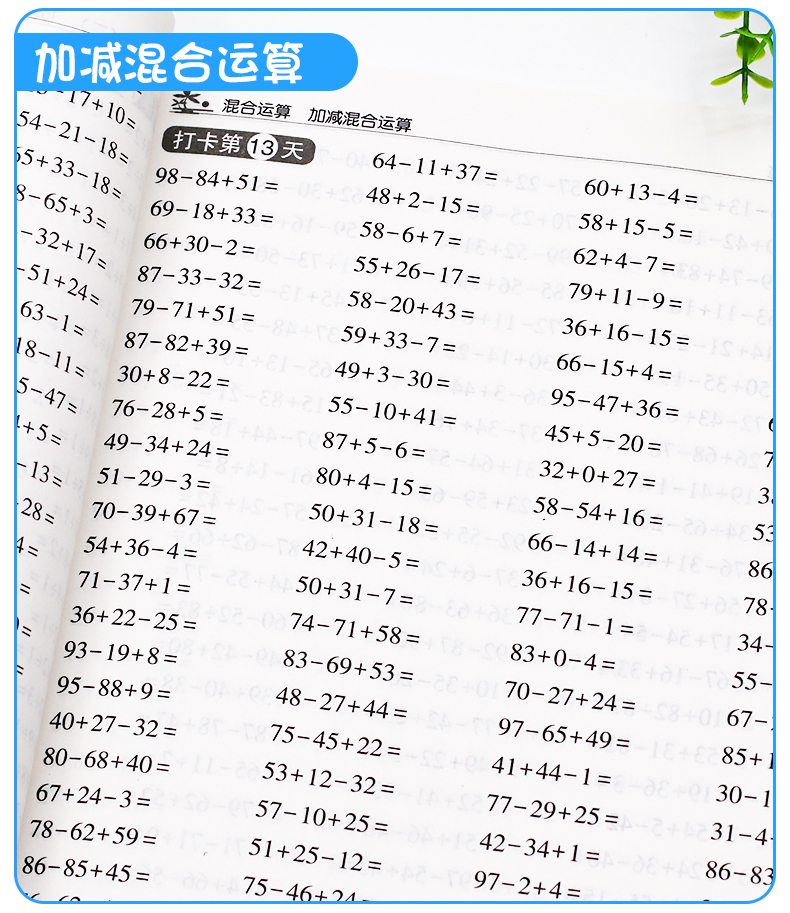 加减混合运算
17+10=
54-21-18=
5+33-18=
8-65+3=
-32+17=
-51+24=
63-1=
18-11=
5-47=
+5=
-13=
-28=
4=
=
=
=
混合运算 加减混合运算
打卡第13天
98-84+51=
69-18+33=
66+30-2=
87-33-32=
79-71+51=
87-82+39=
30+8-22=
76-28+5=
49-34+24=
51-29-3=
70-39+67=
54+36-4=
71-37+1=
36+22-25=
93-19+8=
95-88+9=
40+27-32=
80-68+40=
67+24-3=
78-62+59=
86-85+45=
64-11+37=
48+2-15=
58-6+7=
55+26-17=
58-20+43=
59+33-7=
49+3-30=
55-10+41=
87+5-6=
80+4-15=
50+31-18=
42+40-5=
50+31-7=
74-71+58=
83-69+53=
48-27+44=
75-45+22=
53+12-32=
57-10+25=
51+25-12=
75-46+24=
60+13-4=
58+15-5=
62+4-7=
79+11-9=
36+16-15=
66-15+4=
95-47+36=
45+5-20=
32+0+27=
58-54+16=
66-14+14=
36+16-15=
77-71-1=
83+0-4=
70-27+24=
97-65+49=
41+44-1=
77-29+25=
42-34+1=
97-2+4=
7
3
53
86
78-
34-
55-
67-
85+1
30-1
31-4
86-83